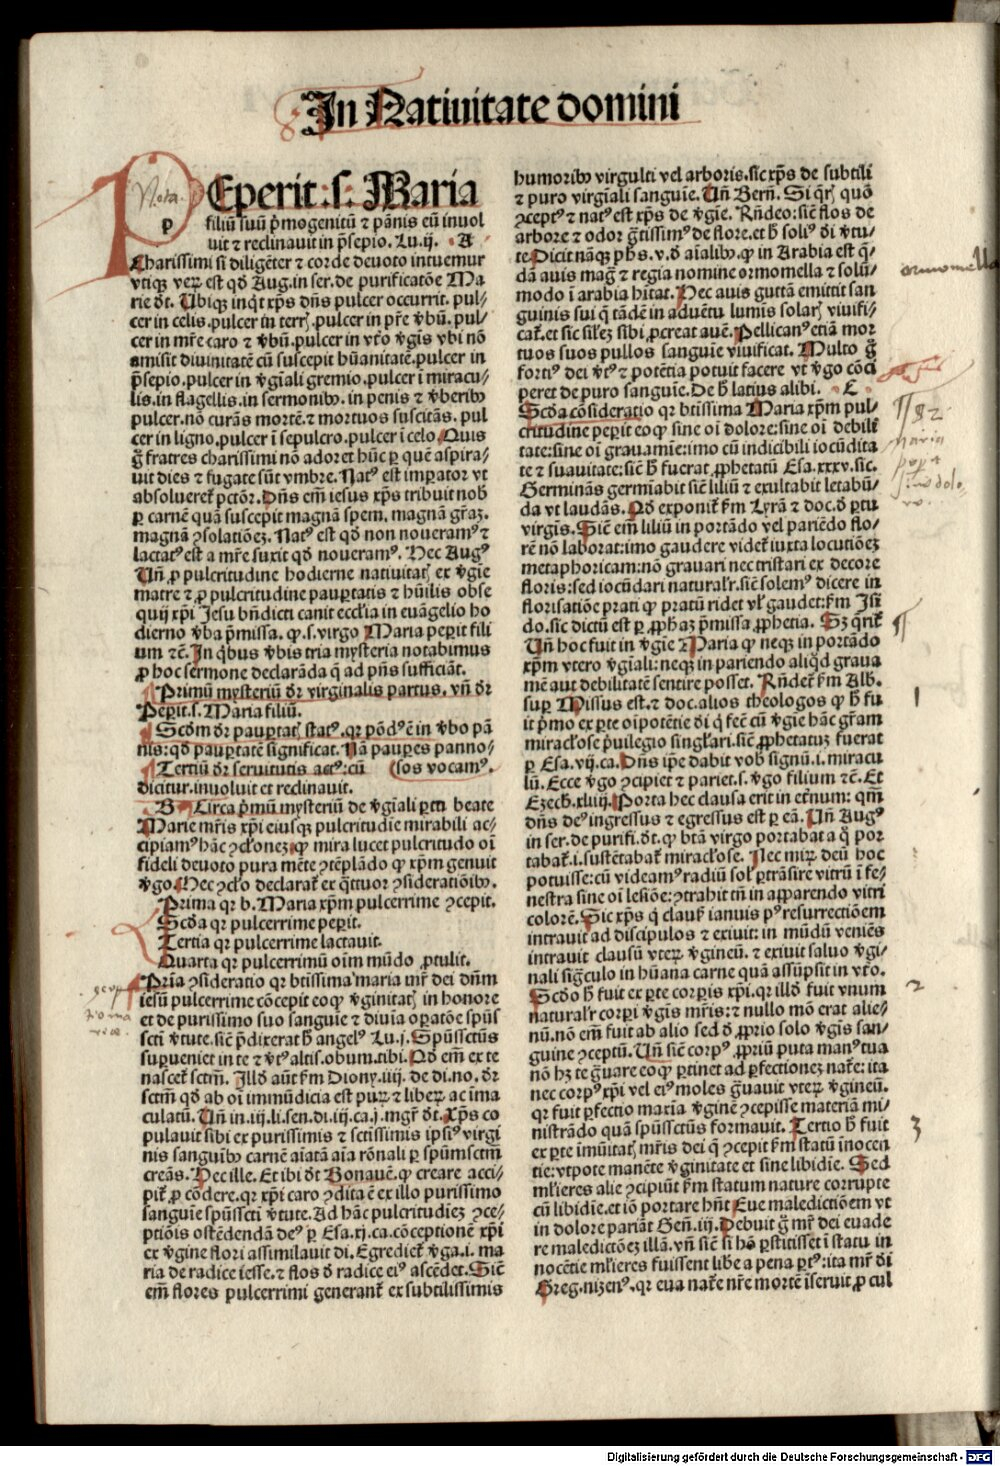 In Natiuitate domini
Nota.
p
Eperit .s. Maria
filiū suū p̄mogenitū ⁊ pānis eū inuol
uit ⁊ reclinauit in p̄sepio. Lu. ij. A
Charissimi si diligēter ⁊ corde deuoto intuemur
vtiqꝫ verꝝ est qd̄ Aug. in ser. de purificatōe Ma
rie dt̄. Ubiqꝫ inqͥt xp̄s dn̄s pulcer occurrit. pul⸗
cer in celis. pulcer in terrꝭ. pulcer in pr̄e v̄bū. pul⸗
cer in mr̄e caro ⁊ v̄bū. pulcer in vt̄o v̄gīs vbi nō
amisit diuinitatē cū suscepit hūanitatē. pulcer in
p̄sepio. pulcer in v̄gīali gremio. pulcer ī miracu⸗
lis. in flagellis. in sermonibꝰ. in penis ⁊ v̄beribꝰ
pulcer. nō curās mortē. ⁊ mortuos suscitās. pul
cer in ligno. pulcer ī sepulcro. pulcer ī celo. Quis
g̊ fratres charissimi nō adoret hūc ꝑ quē aspira⸗
uit dies ⁊ fugate sūt vmbre. Natꝰ est imꝑator vt
absolueret pctōr. Dn̄s em̄ iesus xp̄s tribuit nob̄
ꝑ carnē quā suscepit magnā spem. magnā gr̄aꝫ.
magnā ꝯsolatiōeꝫ. Natꝰ est qd̄ non noueramꝰ ⁊
lactatꝰ est a mr̄e suxit qd̄ noueramꝰ. Hec Augꝰ
Un̄ ꝓ pulcritudine hodierne natiuitatꝭ ex v̄gīe
matre ⁊ ꝓ pulcritudine pauꝑtatis ⁊ hūilis obse
quij xp̄i Jesu bn̄dicti canit eccl̄ia in euāgelio ho
dierno v̄ba p̄missa. ꝙ .s. virgo Maria peperit fili
um ⁊c̄. In qͥbus v̄bis tria mysteria notabimus
ꝓ hoc sermone declarāda q̄ ad pn̄s sufficiāt.
Primū mysteriū dr̄ virginalis partus. vn̄ dr̄
Peꝑit .s. Maria filiū.
Scd̄m dr̄ pauꝑtatꝭ statꝰ. qr̄ pōdꝰ ē in v̄bo pā
nis: qd̄ pauꝑtatē significat. Nā pauꝑes panno⸗
Tertiū dr̄ seruitutis actꝰ: cū (sos vocamꝰ.
dicitur. inuoluit et reclinauit.
B Circa p̄mū mysteriū de v̄gīali ꝑtu beate
Marie mr̄is xp̄i eiusqꝫ pulcritudīe mirabili ac⸗
cipiamꝰ hāc ꝯclōneꝫ ꝙ mira lucet pulcritudo oī
fideli deuoto pura mēte ꝯtēplādo ꝙ xp̄m genuit
v̄go. Hec ꝯclo declarat̄ ex q̄ttuor ꝯsideratiōibꝰ.
Prima qr̄ b. Maria xp̄m pulcerrime ꝯcepit.
Scd̄a qr̄ pulcerrime peꝑit.
Tertia qr̄ pulcerrime lactauit.
Quarta qr̄ pulcerrimū oīm mūdo ꝓtulit.
Prīa ꝯsideratio qr̄ btīssima maria mr̄ dei dn̄m
iesū pulcerrime cōcepit eo ꝙ v̄ginitatꝭ in honore
et de purissimo suo sanguīe ⁊ diuīa oꝑatōe spūs
sctī v̄tute. sic̄ p̄dixerat h̄ angelꝰ Lu. j. Spūssctūs
suꝑueniet in te ⁊ v̄tꝰ altis. obum. tibi. Qd̄ em̄ ex te
nascet̄ sctm̄. Illd̄ aūt ẜm Diony. iiij. de di. no. dr̄
sctm̄ qd̄ ab oī immūdicia est purꝝ ⁊ liberꝝ ac īma
culatū. Un̄ in. iij. li. sen. di. iij. ca. j. mgr̄ dt̄. Xp̄s co
pulauit sibi ex purissimis ⁊ sctīssimis ipsiꝰ virgi
nis sanguibꝰ carnē aīatā aīa rōnali ꝑ spūmsctm̄
creās. Hec ille. Et ibi dt̄ Bonauē. ꝙ creare acci⸗
pit̄ ꝓ cōdere. qr̄ xp̄i caro ꝯdita ē ex illo purissimo
sanguīe spūssctī v̄tute. Ad hāc pulcritudieꝫ ꝯce⸗
ptiōis ostēdendā deꝰ ꝑ Esa. xj. ca. cōceptionē xp̄i
ex v̄gine flori assimilauit di. Egrediet̄ v̄ga. i. ma
ria de radice iesse. ⁊ flos d̄ radice eiꝰ ascēdet. Sic̄
em̄ flores pulcerrimi generant̄ ex subtilissimis
humoribꝰ virgulti vel arboris. sic xp̄s de subtili
⁊ puro virgīali sanguīe. Un̄ Bern̄. Si qr̄ꝭ quō
ꝯceptꝰ ⁊ natꝰ est xp̄s de v̄gīe. Rn̄deo: sic̄ flos de
arbore ⁊ odor gr̄tissimꝰ de flore. et h̄ soliꝰ di v̄tu⸗
te. Dicit nāqꝫ ph̄s. v. d̄ aīalibꝰ. ꝙ in Arabia est q̄⸗
dā auis mag̊ ⁊ regia nomine ormomella ⁊ solū⸗
modo ī arabia hitat. Hec auis guttā emittit san
guinis sui q̄ tādē in aduētu lumīs solarꝭ viuifi⸗
cat̄. et sic sil̄eꝫ sibi ꝓcreat auē. Pellicanꝰ etiā mor
tuos suos pullos sanguīe viuificat. Multo g̊
fortiꝰ dei v̄tꝰ ⁊ potētia potuit facere vt v̄go cōci
peret de puro sanguīe. De h̄ latius alibi. C
Scd̄a cōsideratio qr̄ btīssima Maria xp̄m pul⸗
critudine peꝑit eo ꝙ sine oī dolore: sine oī debili
tate: sine oī grauamīe: imo cū indicibili iocūdita
te ⁊ suauitate: sic̄ h̄ fuerat ꝓphetatū Esa. xxxv. sic.
Germinās germīabit sic̄ liliū ⁊ exultabit letabū⸗
da vt laudās. Qd̄ exponit̄ ẜm Lyrā ⁊ doc. d̄ ꝑtu
virgīs. Sic̄ em̄ liliū in portādo vel pariēdo flo⸗
rē nō laborat: imo gaudere videt̄ iuxta locutiōeꝫ
metaphoricam: nō grauari nec tristari ex decore
floris: sed iocūdari naturalr̄. sic̄ solemꝰ dicere in
florisatiōe prati ꝙ pratū ridet vl̄ gaudet: ẜm Isī
do. sic dictū est ꝑ ꝓphaꝫ p̄missa ꝓphetia. Sꝫ q̄rit̄
Un̄ hoc fuit in v̄gīe Maria ꝙ neqꝫ in portādo
xp̄m vtero v̄gīali: neqꝫ in pariendo aliqͥd graua
mē aut debilitatē sentire posset. Rn̄det̄ ẜm Alb.
suꝑ Missus est. ⁊ doc. alios theologos ꝙ h̄ fu
it p̄mo ex ꝑte oīpotētie di q̄ fec̄ cū v̄gīe hāc gr̄am
miraclose p̄uilegio singl̄ari. sic̄ ꝓphetatuꝫ fuerat
ꝑ Esa. vij. ca. Dn̄s ip̄e dabit vob̄ signū. i. miracu
lū. Ecce v̄go ꝯcipiet ⁊ pariet. s. v̄go filium ⁊c̄. Et
Ezech. xliiij. Porta hec clausa erit in et̄num: qm̄
dn̄s deꝰ ingressus ⁊ egressus est ꝑ eā. Un̄ Augꝰ
in ser. de purifi. dt̄. ꝙ bt̄ā virgo portabat a q̊ por
tabat̄. i. sustētabat̄ miraclose. Nec mirꝝ deū hoc
potuisse: cū videamꝰ radiū sol̄ ꝑtrāsire vitrū ī fe⸗
nestra sine oī lesiōe: ꝯtrahit tn̄ in apparendo vitri
colorē. Sic xp̄s q̇ claus̄ ianuis pꝰ resurrectiōem
intrauit ad discipulos ⁊ exiuit: in mūdū veniēs
intrauit clausū vterꝝ v̄gineū. ⁊ exiuit saluo v̄gi⸗
nali sigc̄ulo in hūana carne quā assūpsit in vt̄o.
Scd̄o h̄ fuit ex ꝑte corꝑis xp̄i. qr̄ illd̄ fuit vnum
naturalr̄ corꝑi v̄gīs mr̄is: ⁊ nullo mō erat alie⸗
nū. nō em̄ fuit ab alio sed d̄ ꝓprio solo v̄gīs san⸗
guine ꝯceptū. Un̄ sic̄ corpꝰ ꝓpriū puta manꝰ tua
nō hꝫ te gͣuare eo ꝙ ꝑtinet ad ꝑfectioneꝫ nat̄e: ita
nec corpꝰ xp̄i vel eiꝰ moles gͣuauit vterꝝ v̄gineū.
qr̄ fuit ꝑfectio maxīa v̄ginē ꝯcepisse materiā mi⸗
nistrādo quā spūssctūs formauit. Tertio h̄ fuit
ex ꝑte imūitatꝭ mr̄is dei q̄ ꝯcepit ẜm statū inocen
tie: vtpote manēte v̄ginitate et sine libidīe. Sed
ml̄ieres alie ꝯcipiūt ẜm statum nature corrupte
cū libidīe. et iō portare hn̄t Eue maledictiōem vt
in dolore pariāt Gen̄. iij. Debuit g̊ mr̄ dei euade
re maledictōeꝫ illā. vn̄ sic̄ si hō ꝑstitisset ī statu in
nocētie ml̄ieres fuissent libe a pena ꝑtꝰ: ita mr̄ di
Greg. nizenꝰ. qr̄ eua nat̄e nr̄e mortē īseruit. ꝓ cul
ormomella
maria
1
2
3
Digitalisierung gefördert durch die Deutsche Forschungsgemeinschaft - DFG